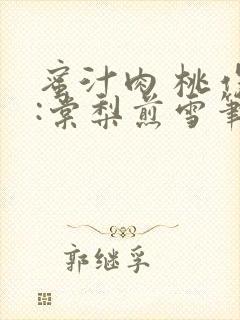 蜜汁肉桃
:棠梨煎雪筆
郭继孚